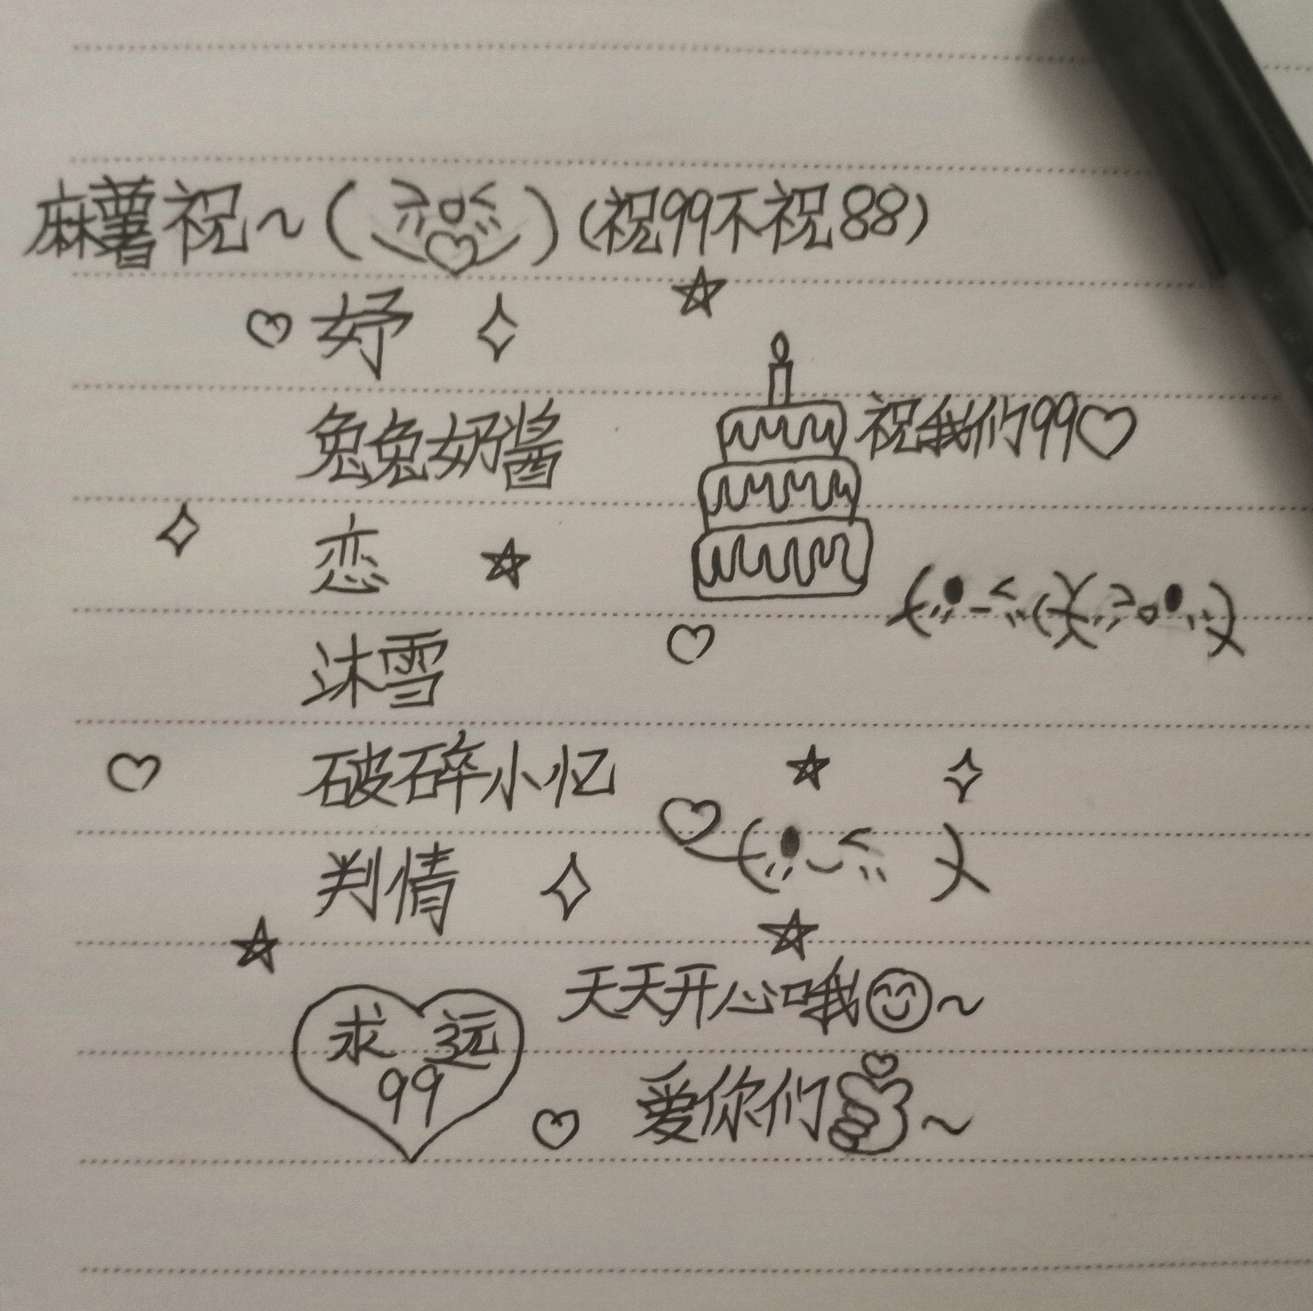 麻薯祝~(祝99不祝88)
妤
兔兔奶酱
祝我们99
恋
沐雪
破碎小忆
判情
天天开心哦~
求远
99
爱你们~